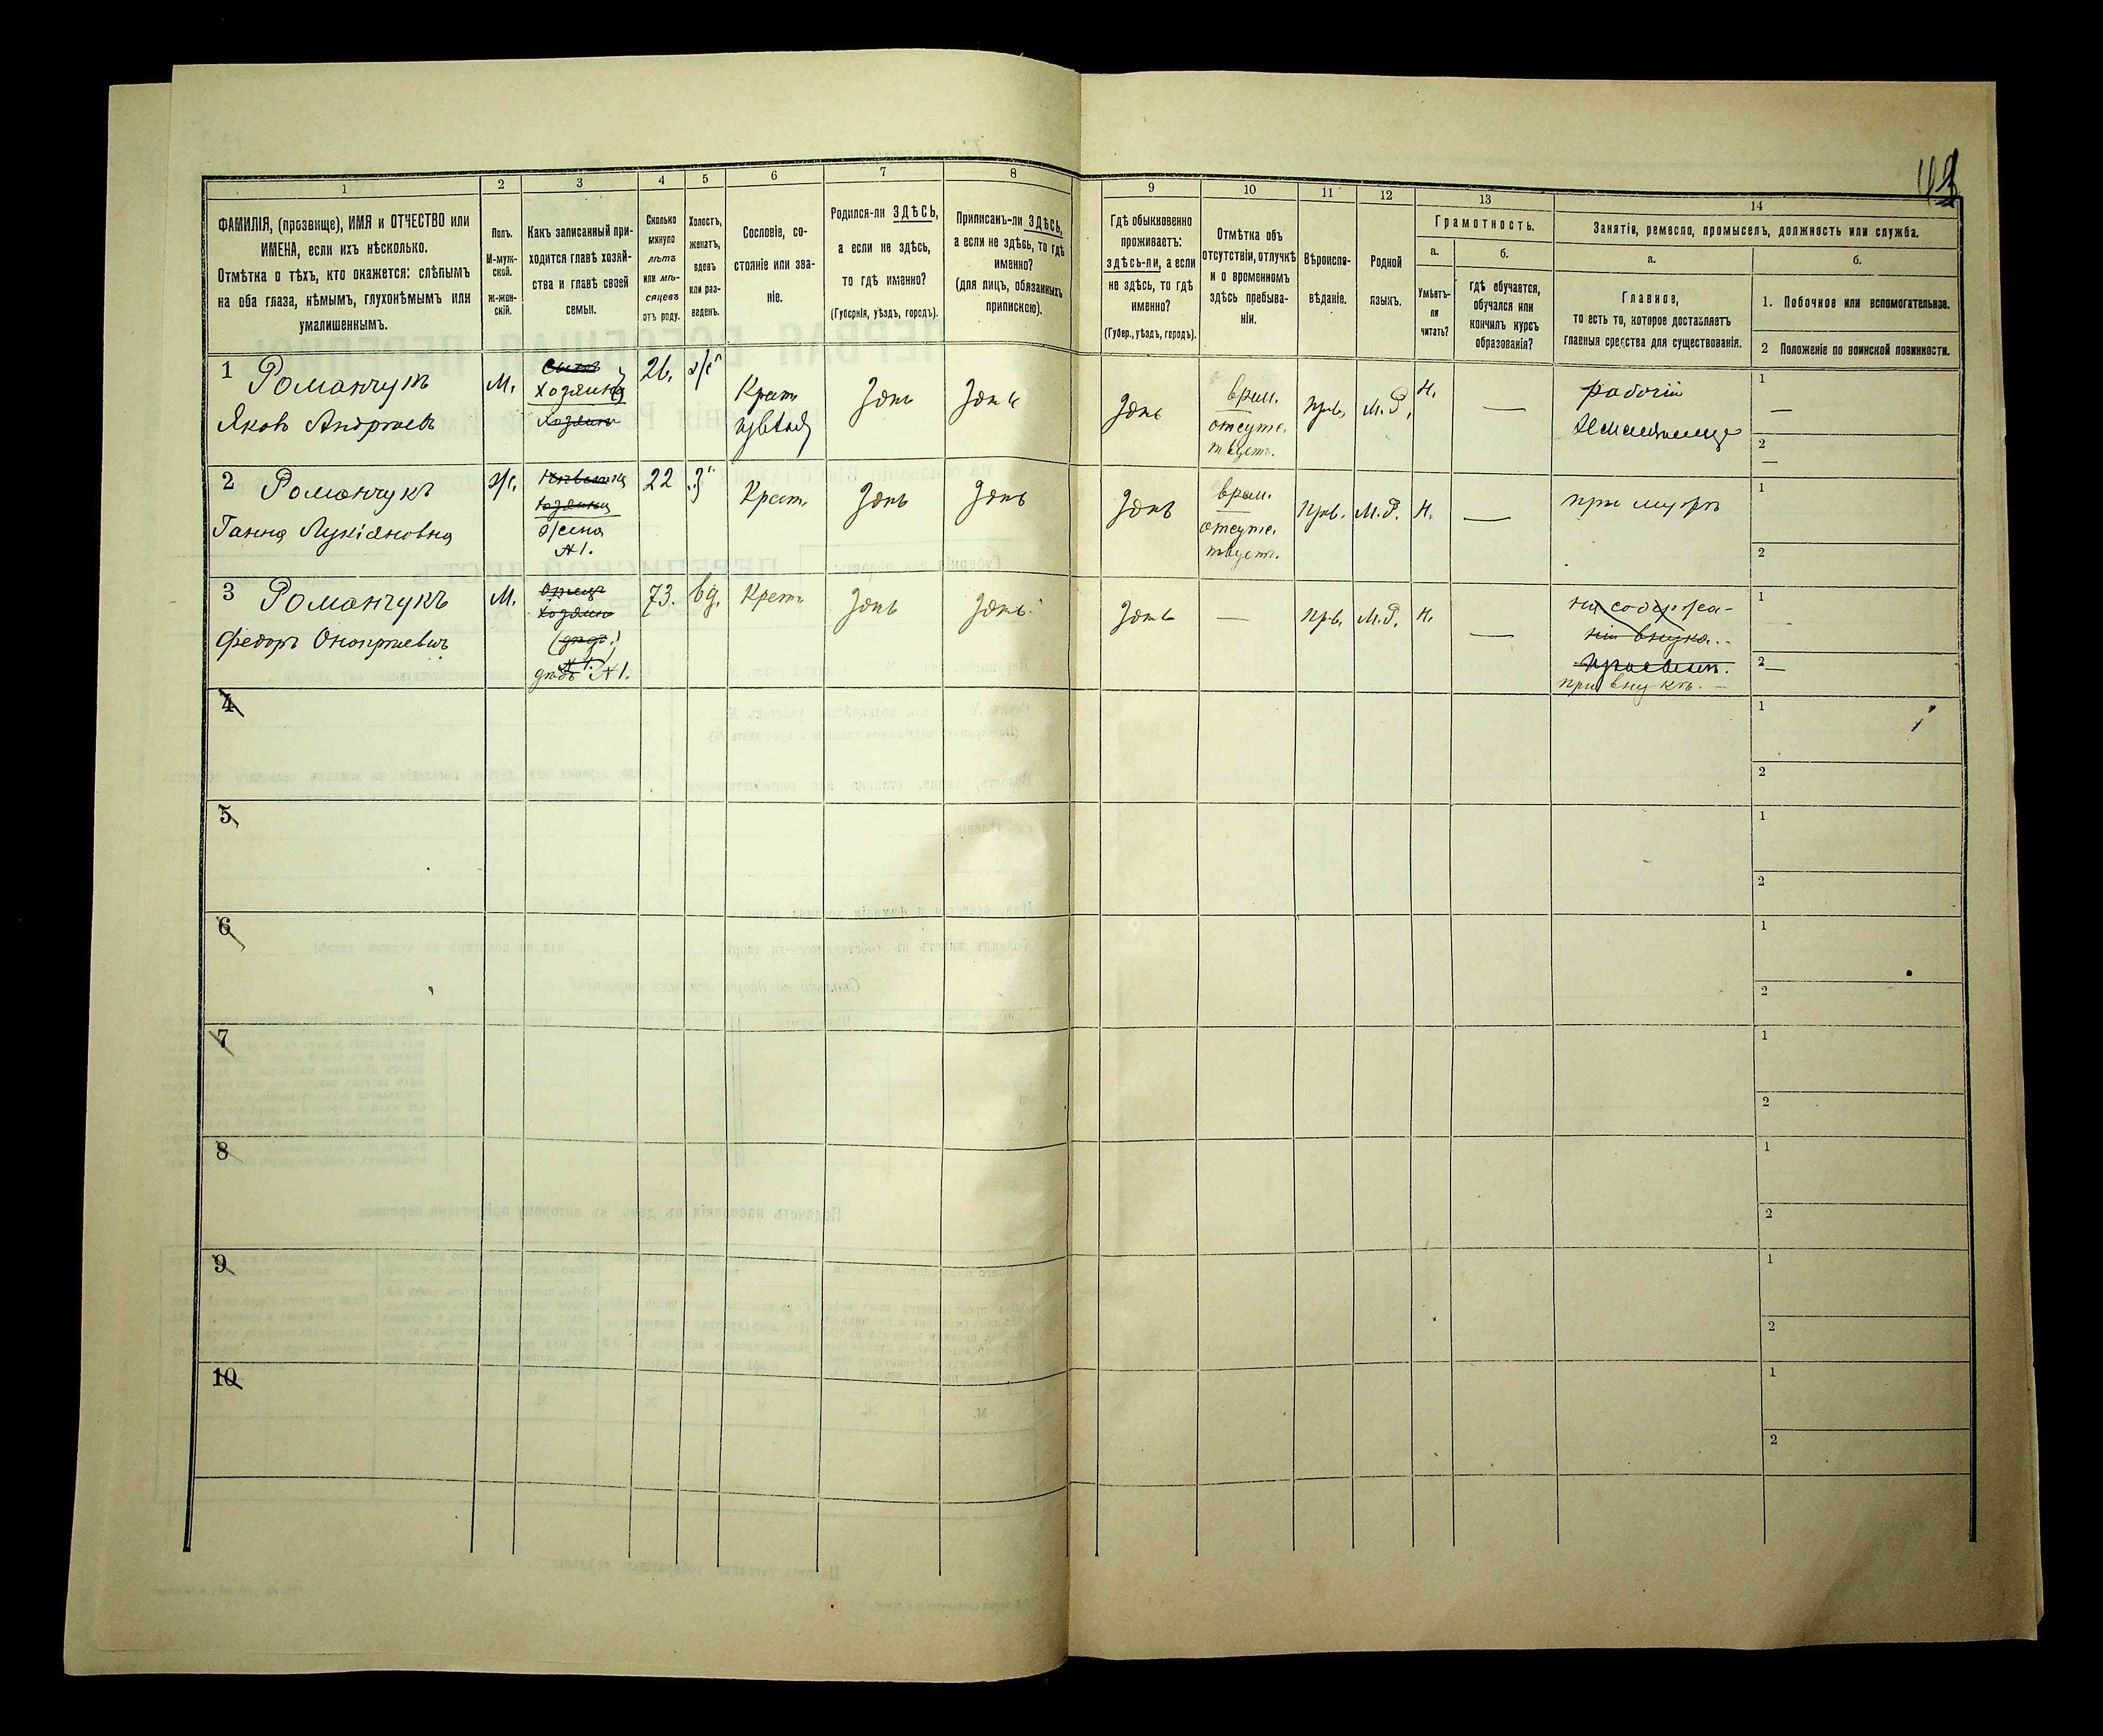 42
1
2
3
4
5
6
7
8
9
10
11
12
13
14
ФАМИЛІЯ, (прозвище), ИМЯ и ОТЧЕСТВО или
ИМЕНА, если ихъ нѣсколько.
Отмѣтка о тѣхъ, кто окажется: слѣпымъ
на оба глаза, нѣмымъ, глухонѣмымъ или
умалишеннымъ.
Полъ.
М-муж-
ской.
Ж-жен-
скій.
Какъ записанный при-
ходится главѣ хозяй-
ства и главѣ своей
семьи.
Сколько
минуло
лѣтъ
или мѣ-
сяцевъ
отъ роду.
Холостъ,
женатъ,
вдовъ
или раз-
веденъ.
Сословіе, со-
стояніе или зва-
ніе.
Родился-ли ЗДѢСЬ,
а если не здѣсь,
то гдѣ именно?
(Губернія, уѣздъ, городъ).
Приписанъ-ли ЗДѢСЬ,
а если не здѣсь, то гдѣ
именно?
(для лицъ, обязанныхъ
припискою).
Гдѣ обыкновенно
проживаетъ:
здѣсь-ли, а если
не здѣсь, то гдѣ
именно?
(Губер., уѣздъ, городъ).
Отмѣтка объ
отсутствіи, отлучкѣ
и о временномъ
здѣсь пребыва-
ніи.
Вѣроиспо-
вѣданіе.
Родной
языкъ.
Грамотность.
а.
Умѣетъ-
ли
читать?
б.
гдѣ обучается,
обучался или
кончилъ курсъ
образованія?
Занятія, ремесло, промыселъ, должность или служба.
а.
Главное,
то есть то, которое доставляетъ
главныя средства для существованія.
б.
1. Побочное или вспомогательное.
2 Положеніе по воинской повинности.
1 Романчукъ
Яковъ Андреевъ
М.
Хозяинъ
26.
ж
Крест.
здѣсь
здѣсь
здѣсь
врем.
отсутс.
твует.
прв.
М.Р.
Н.
—
рабочій
1
—
2
—
2 Романчукъ
Ганна Лукіяновна
ж.
хозяинъ
жена
№1.
22
з.
Крест.
здѣсь
здѣсь
здѣсь
врем.
отсутс.
твует.
прв.
М.Р.
Н.
—
при мужѣ
1
2
3 Романчукъ
Федоръ Онопріевичъ
М.
Отецъ
Хозяина
№1.
дѣдъ №1.
73.
вд.
Крест.
здѣсь
здѣсь
здѣсь
—
прв.
М.Р.
Н.
—
на содержа-
ніи внука.
при внукѣ. —
1
2
—
4
1
2
5
1
2
6
1
2
7
1
2
8
1
2
9
1
2
10
1
2